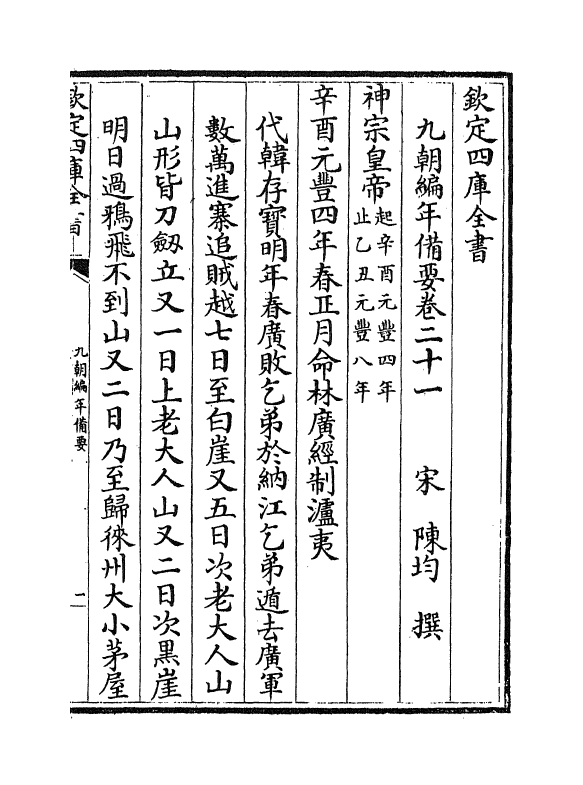 欽定四庫全書
九朝編年備要卷二十一　宋　陳均　撰
神宗皇帝起辛酉元豐四年
止乙丑元豐八年
辛酉元豐四年春正月命林廣經制瀘夷
代韓存寳明年春廣敗乞弟於納江乞弟遁去廣軍
數萬進寨追賊越七日至白崖又五日次老大人山
山形皆刀劔立又一日上老大人山又二日次黒崖
明日過鴉飛不到山又二日乃至歸徠州大小茅屋
欽定四庫全書
九朝編年備要